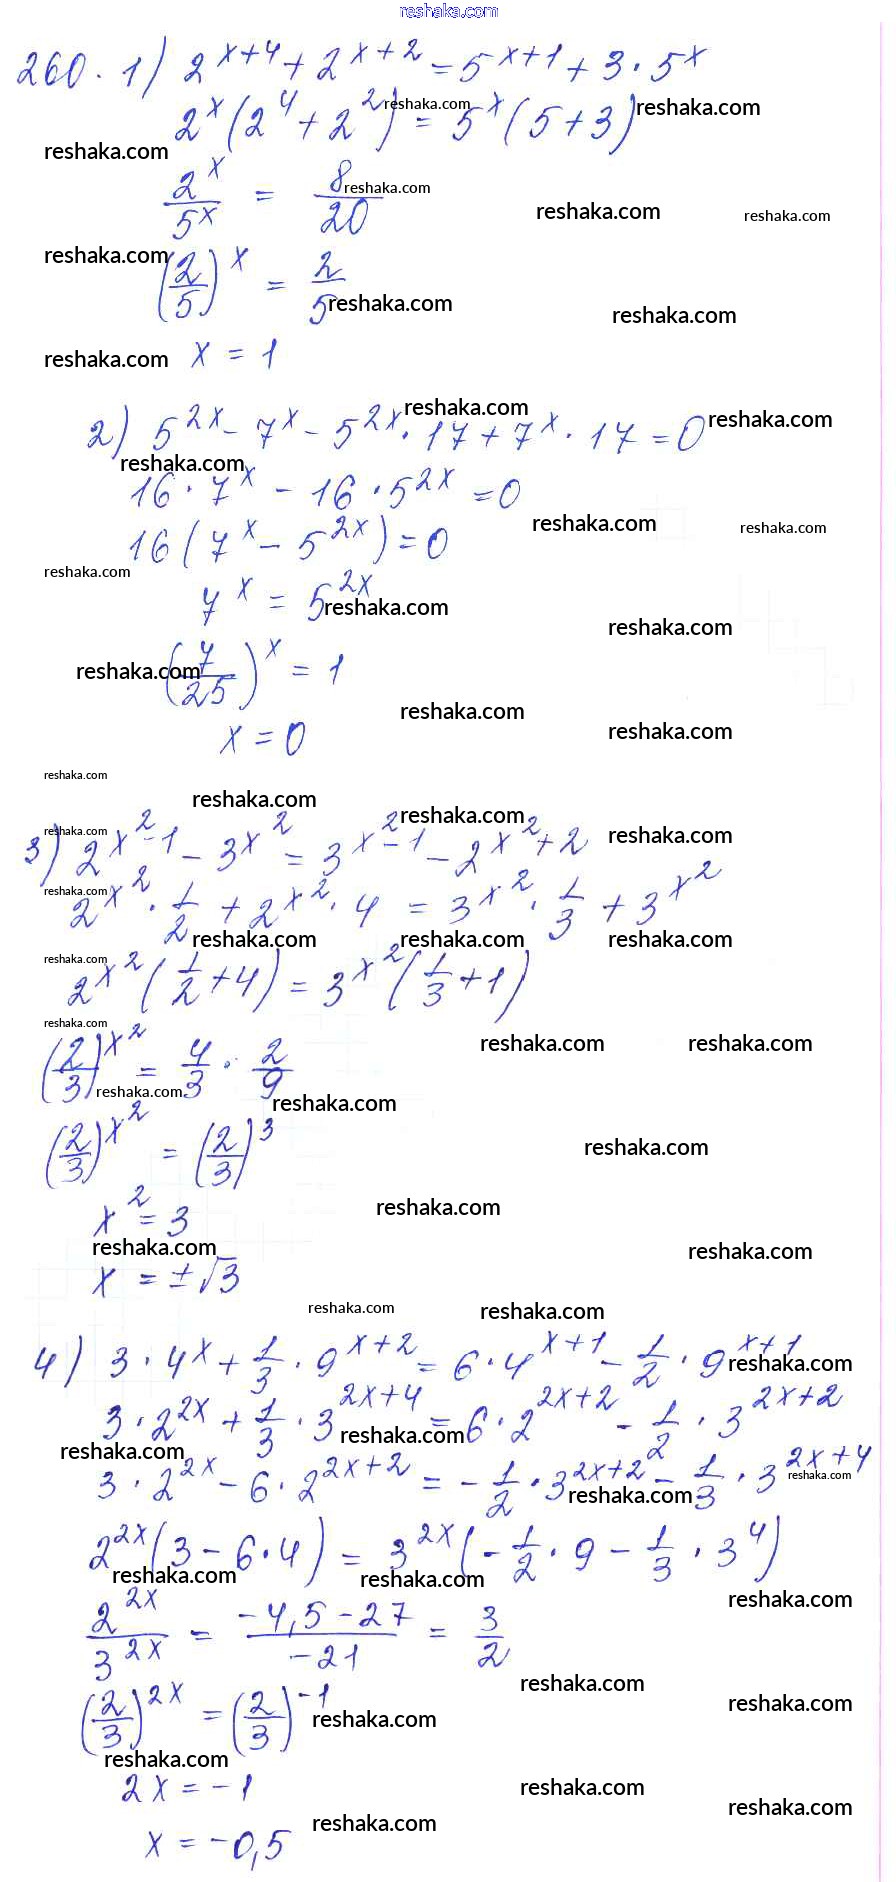 reshaka.com
260. 1) 2^(x+4) + 2^(x+2) = 5^(x+1) + 3 · 5^x
2^x (2^4 + 2^2) = 5^x (5 + 3)
2^x / 5^x = 8/20
(2/5)^x = 2/5
x = 1
2) 5^(2x) - 7^x - 5^(2x) · 17 + 7^x · 17 = 0
16 · 7^x - 16 · 5^(2x) = 0
16 (7^x - 5^(2x)) = 0
7^x = 5^(2x)
(7/25)^x = 1
x = 0
3) 2^(x^2-1) - 3^(x^2) = 3^(x^2-1) - 2^(x^2+2)
2^(x^2) · 1/2 + 2^(x^2) · 4 = 3^(x^2) · 1/3 + 3^(x^2)
2^(x^2) (1/2 + 4) = 3^(x^2) (1/3 + 1)
(2/3)^(x^2) = 4/3 · 2/9
(2/3)^(x^2) = (2/3)^3
x^2 = 3
x = ±√3
4) 3 · 4^x + 1/3 · 9^(x+2) = 6 · 4^(x+1) - 1/2 · 9^(x+1)
3 · 2^(2x) + 1/3 · 3^(2x+4) = 6 · 2^(2x+2) - 1/2 · 3^(2x+2)
3 · 2^(2x) - 6 · 2^(2x+2) = -1/2 · 3^(2x+2) - 1/3 · 3^(2x+4)
2^(2x) (3 - 6 · 4) = 3^(2x) (-1/2 · 9 - 1/3 · 3^4)
2^(2x) / 3^(2x) = (-4,5 - 27) / -21 = 3/2
(2/3)^(2x) = (2/3)^(-1)
2x = -1
x = -0,5